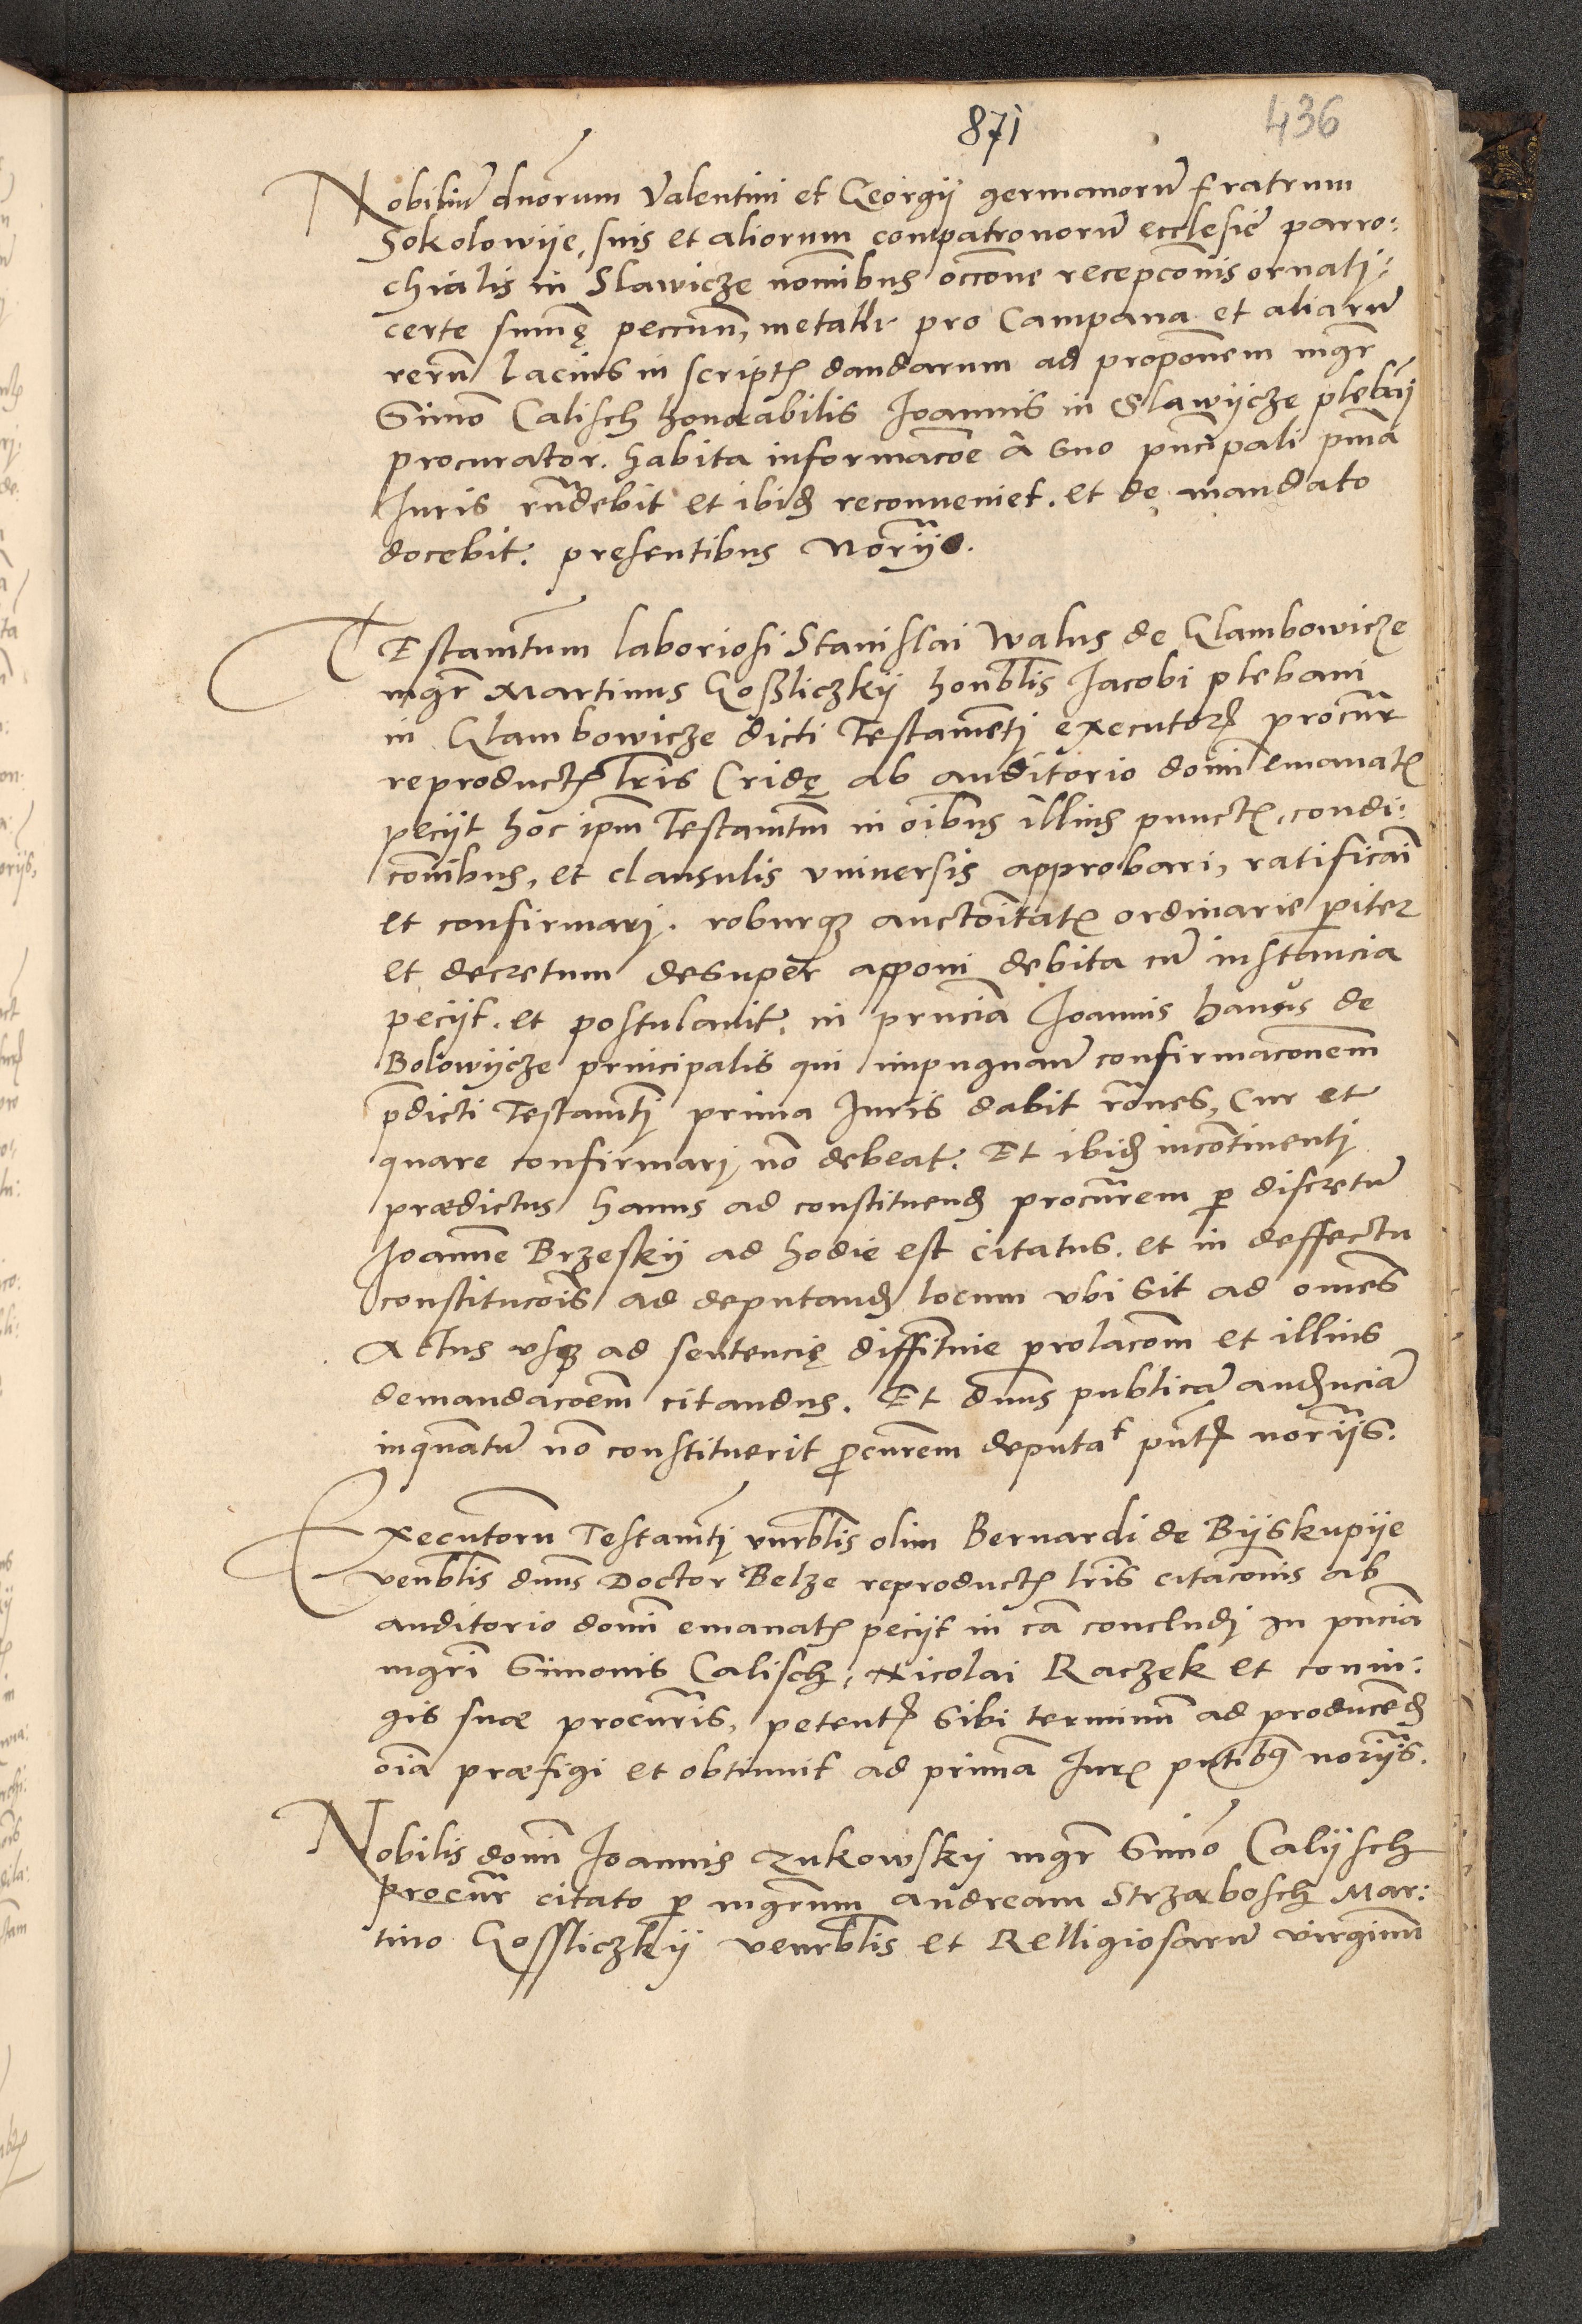 871
436
Nobiliu͂ dnorum Valentini et Georgij germanoru͂ fratrum
Sokolowije, suis et aliorum compatronoru͂ ecclesie parro:
chialis in Slawicze nomĩbus occõne recepcõnis ornatj:
certe sum̃ę peccun͂, metalli pro Campana et aliaru͂
reru͂ lacius in scriptꝭ dandarum ad propõnem mgr̃
Simo͂ Calisch honorabilis Joannis in Slawijcze plebn͂j
procurator. habita informacõe a suo pñcipali pm̃a
Juris rñdebit et ibid͂ reconueniet. et de mandato
docebit. presentibus Norijs.
TEstamẽtum laboriosi Stanislai Walus de Glambowicze
mgr̃ Martinus Goßliczkij honbl̃is Jacobi plebani
in Glambowicze dicti Testamẽtj executorꝭ procur̃
reproductꝭ lr̃is Cridę ab auditorio domĩ emanatꝭ
pecijt hoc ipm̃ Testamẽtm in oĩbus illius punctꝭ, condi:
cõnibus, et clausulis vniuersis approbari, ratificari
et confirmarj. roburqꝫ auctoritatꝭ ordinarie pariter
et decretum desuper apponi debita cu͂ instancia
pecijt. et postulauit. in pñcia Joannis hanus de
Bolowijcze principalis qui impugnan͂ confirmaconem̃
p̃dicti Testamẽtj prima Juris dabit rõnes, Cur et
quare confirmarj no͂ debeat. Et ibid͂ incontinentj
prædictus hanus ad constituend͂ procur̃em ꝑ discretu͂
Joannem Brzeskij ad hodie est citatus. et in deffectu
constitucõis ad deputand͂ locum vbi sit ad omẽs
Actus vsqꝫ ad sentencię diffĩtiuie prolacõm et illius
demandacõem citandus. Et dnus publicã audẽnciã
inquantu͂ no͂ constituerit ꝓcur̃em deputat pñtꝭ norijs.
Executoru͂ Testamẽtj venrbl̃is olim Bernardi de Bijskupije
venbl̃is dnus Doctor Belze reproductꝭ lr̃is citacõnis ab
auditorio domĩ emanatꝭ pecijt in cã concludj in pñcia
mgr̃i Simonis Calisch, Nicolai Raczek et coniu:
gis suæ procur̃is, petentꝭ sibi terminũ ad producend͂
oĩa præfigi et obtinuit ad primã Jurꝭ pñtibꝯ norijs.
Nobilis domĩ Joannis Zukowskij mgr̃ Simo͂ Calijsch
procur̃ citato ꝑ mgr̃um andream Strzabosch Mar:
tino Gossliczkij venrbl̃is et Relligiosaru͂ virginũ